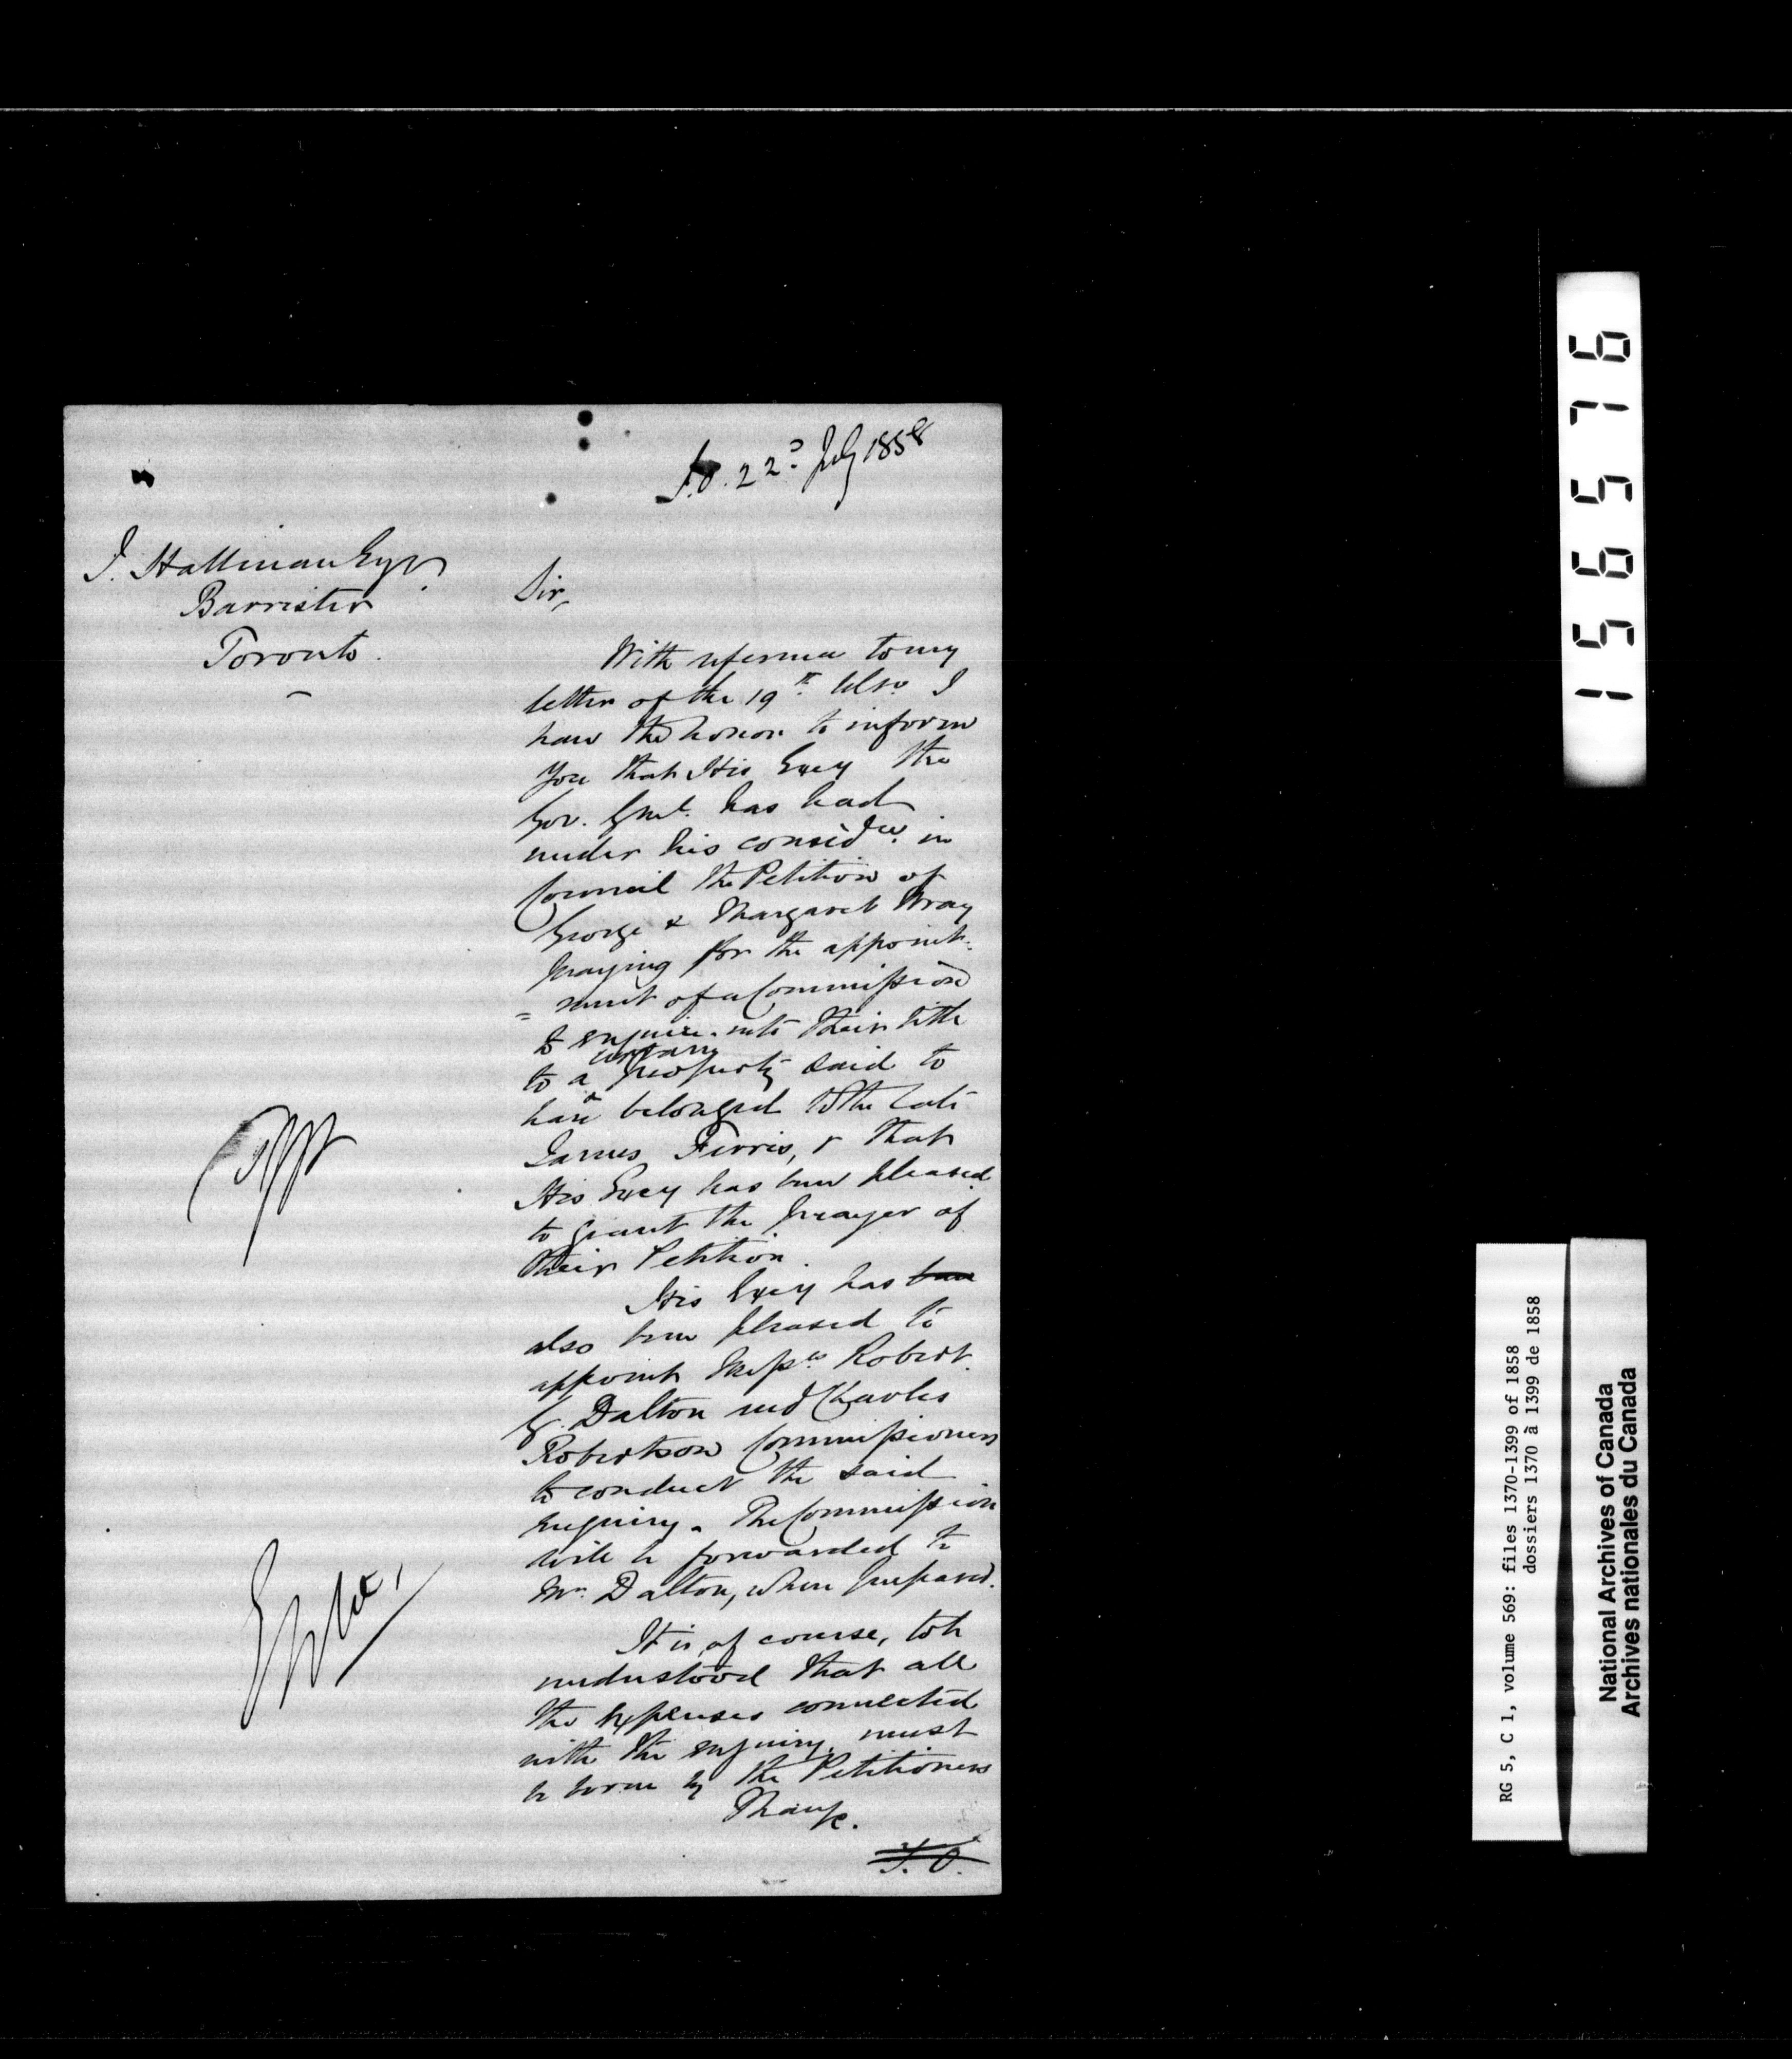 S.O. 22d July 1858
J. Hallinan Esqr.
Barrister
Toronto.
Sir,
With reference to my
letter of the 19th Ulto. I
have the honor to inform
you that His Excy the
Gov. Genl. has had
under his considn. in
Council the Petition of
George & Margaret Wray
praying for the appoint-
=ment of a Commission
to enquire into their title
to a certain property said to
have belonged to the late
James Ferris, & that
His Excy has been pleased
to grant the prayer of
their Petition.
His Excy has been
also been pleased to
appoint Messrs Robert
G. Dalton and Charles
Robertson Commissioners
to conduct the said
enquiry. The Commission
will be forwarded to
Mr. Dalton, when prepared.
It is, of course, to be
understood that all
the expenses connected
with the enquiry must
be borne by the Petitioners
156576
RG 5, C 1, volume 569: files 1370-1399 of 1858
dossiers 1370 à 1399 de 1858
National Archives of Canada
Archives nationales du Canada